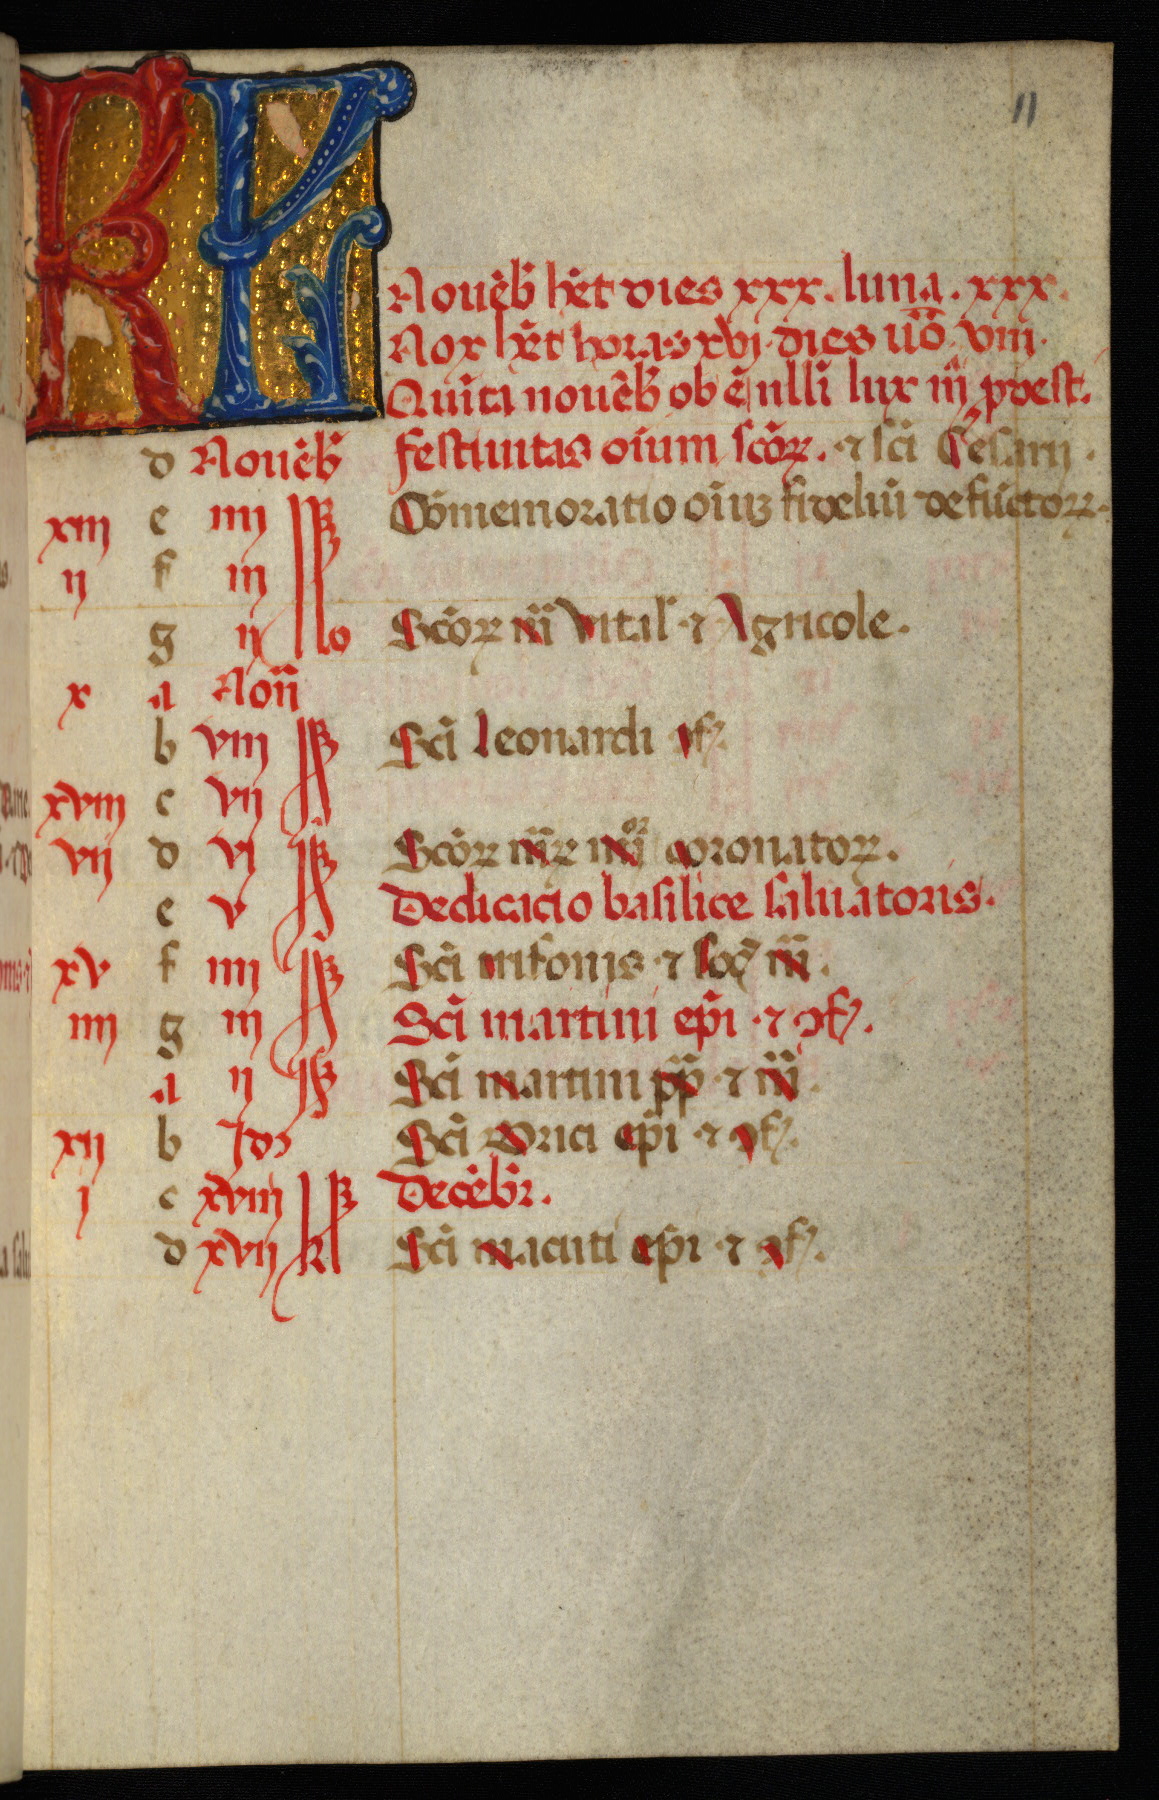 11
KL
Nouēb̄ h̄et dies xxx. luna. xxx.
Nox h̄et horas xvj. dies ūō. viii.
Quīta nouēb̄ ob ē nllī lux iij p̄dest.
d Nouēb̄ festiuitas oīum sc̄oꝝ. ⁊ sc̄i Cesarij.
xiii e iiij Cōmemoratio oīuꝫ fideliū defūctoꝝ.
ii f iij
g ij No Sc̄oꝝ m̄ Vital' ⁊ Agricole.
x a Non̄
b viii Sc̄i leonardi ꝯf.
xviii c vii
vii d vi Sc̄oꝝ m̄rꝝ iiijor coronatoꝝ.
e v Dedicacio basilice saluatoris.
xv f iiij Sc̄i trifonis ⁊ soc̄ m̄.
iiij g iij Sc̄i martini ep̄i ⁊ ꝯf.
a ij Sc̄i martini pp̄ ⁊ m̄.
xii b Jdꝰ Sc̄i Bricii ep̄i ⁊ ꝯf.
i c xviii kl Decēbr̄.
d xvii kl Sc̄i macuti ep̄i ⁊ ꝯf.